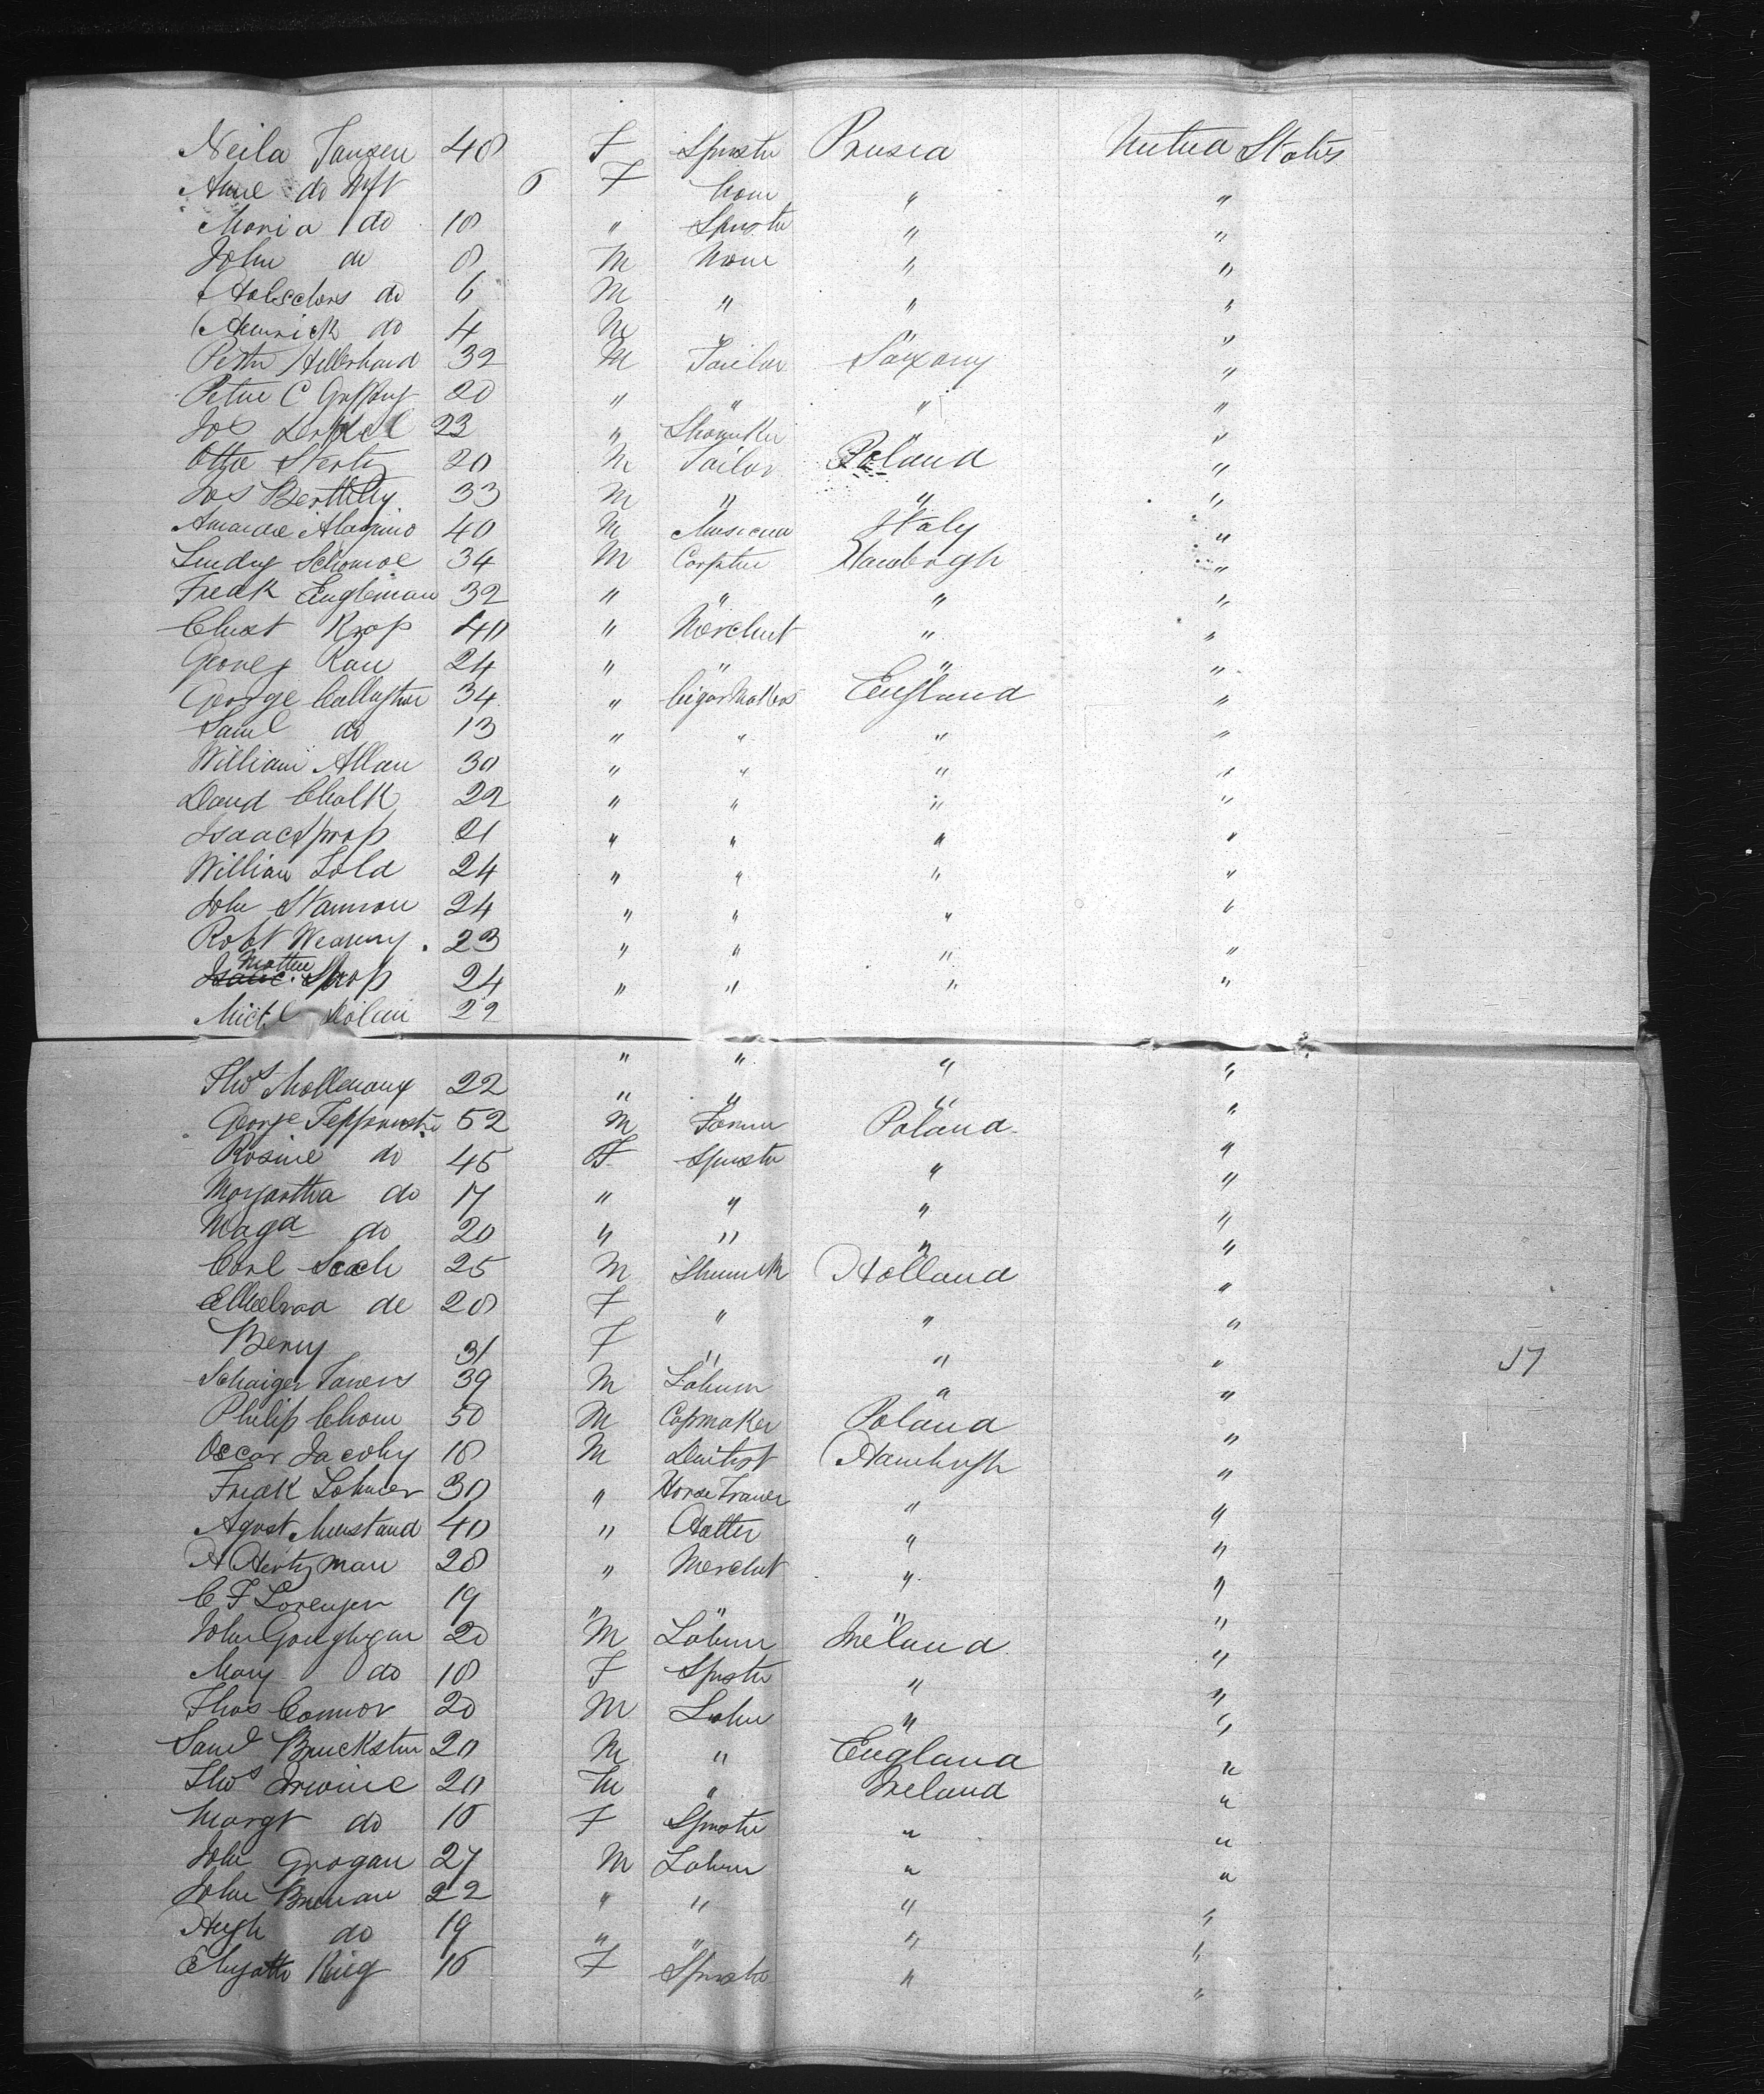 Neila Jansen 40 F Spinstr Prusia United States
Anne do Inft 6 F None " "
Maria do 18 " Spinstr " "
John do 8 M None " "
do 6 M " " "
Heinrich do 4 M " " "
Peter Hillerhand 32 M Tailor Saxony "
Petre C 20 " " " "
Jos 23 " Shomker "
Otto Stertz 20 M Tailor Poland "
Jos 33 M " " "
40 M Musician Italy "
Schomoe 34 M Carpter Hambrgh "
Fredk Engleman 32 " " " "
Christ Krop 40 " Merchnt " "
George Rau 24 " " " "
George Callaghan 34 " Cigar Maker England "
Saml do 13 " " " "
William Allan 30 " " " "
David Chalk 22 " " " "
Isaac Sprop 21 " " " "
William Lold 24 " " " "
John Stamson 24 " " " "
Robt Wearing 23 " " " "
Isaac Matthew Sprop 24 " " " "
Michl Dolan 22 " " " "
Thos Mollenaux 22 " " " "
George 52 M Farmer Poland "
Rosine do 45 F Spinstr " "
Margartha do 17 " " " "
Maga do 20 " " " "
Carl Sach 25 M Shumk Holland "
de 28 F " " "
Berry 31 F " " "
39 M Laburer " "
Philip Chom 50 M Capmaker Poland "
Oscar Jacoby 18 M Dentist Hamburgh "
Fredk Lohmer 30 " Horse Traner " "
Agost 40 " Hatter " "
A Hertzman 28 " Merchnt " "
C F Lorenzen 19 " " " "
John Goughegan 20 M Laburer Ireland "
Mary do 18 F Spnstr " "
Thos Connor 20 M Labur " "
Saml Bruckster 20 M " England "
Thos Irwine 20 M " Ireland "
Margt do 18 F Spnstr " "
John Grogan 27 M Labur " "
John Brenan 22 " " " "
Hugh do 19 " " " "
King 18 F Spinstr " "